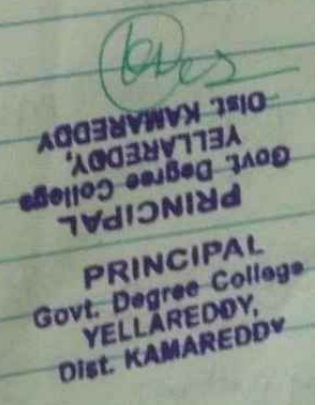 PRINCIPAL
Govt. Degree College
YELLAREDDY,
Dist. KAMAREDDY
PRINCIPAL
Govt. Degree College
YELLAREDDY,
Dist. KAMAREDDY